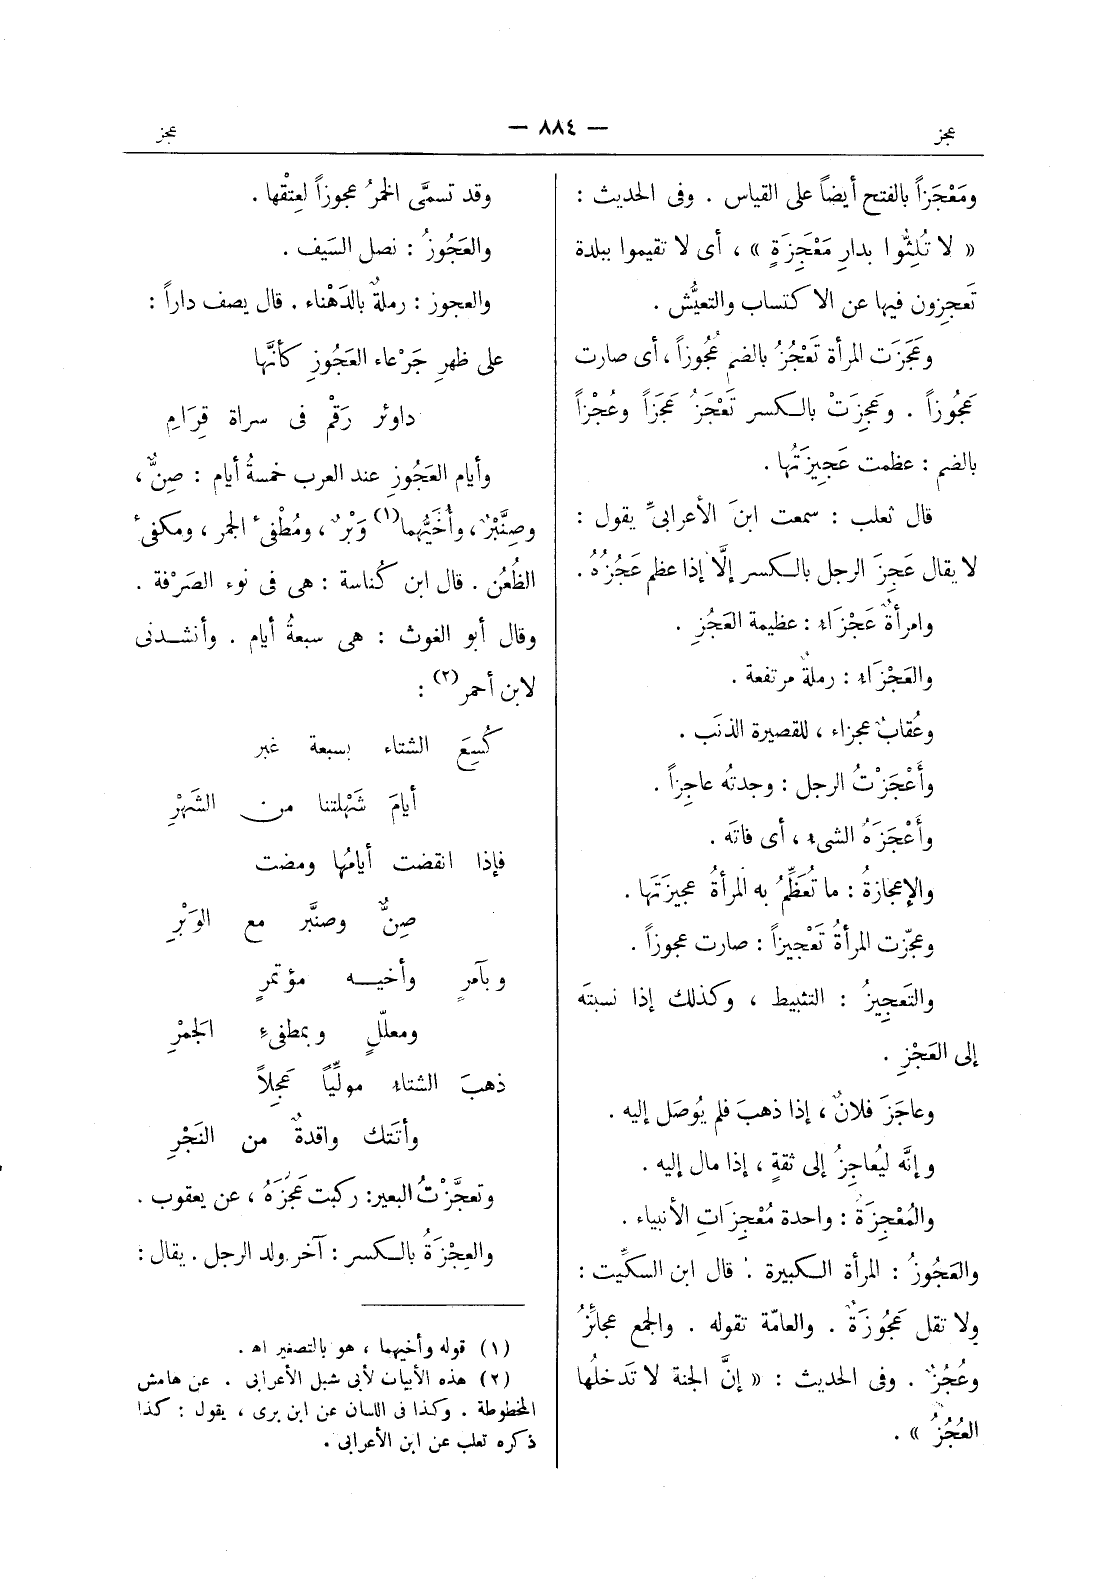 عجز
— ٨٨٤ —
عجز
ومَعْجَزاً بالفتح أيضاً على القياس . وفى الحديث :
« لا تُلِثُّوا بدارِ مَعْجِزَةٍ » ، أى لا تقيموا ببلدة
تَعجِزون فيها عن الاكتساب والتعيُّش .
وعَجَزَت المرأة تَعْجُزُ بالضم عُجُوزاً ، أى صارت
عَجُوزاً . وعَجِزَتْ بالكسر تَعْجَزُ عَجَزاً وعُجْزاً
بالضم : عظمت عَجِيزَتُها .
قال ثعلب : سمعت ابنَ الأعرابىِّ يقول :
لا يقال عَجِزَ الرجل بالكسر إلَّا إذا عظم عَجُزُهُ .
وامرأةٌ عَجْزَاء : عظيمة العَجُزِ .
والعَجْزَاء : رملةٌ مرتفعة .
وعُقابٌ عجزاء ، للقصيرة الذنَب .
وأَعْجَزْتُ الرجل : وجدتُه عاجِزاً .
وأَعْجَزَهُ الشىء ، أى فاتَه .
والإعجازةُ : ما تُعَظِّمُ به المرأةُ عجيزَتَها .
وعجّزت المرأةُ تَعْجِيزاً : صارت عجوزاً .
والتَعجِيزُ : التثبيط ، وكذلك إذا نسبتَه
إلى العَجْزِ .
وعاجَزَ فلانٌ ، إذا ذهبَ فلم يُوصَل إليه .
وإنَّه ليُعاجِزُ إلى ثقةٍ ، إذا مال إليه .
والمُعْجِزَةُ : واحدة مُعْجِزَاتِ الأنبياء .
والعَجُوزُ : المرأة الكبيرة . قال ابن السكِّيت :
ولا تقل عَجُوزَةٌ . والعامّة تقوله . والجمع عجائزُ
وعُجُزٌ . وفى الحديث : « إنَّ الجنة لا تَدخلُها
العُجُزُ » .
وقد تسمَّى الخمرُ عجوزاً لعِتْقها .
والعَجُوزُ : نصل السَيف .
والعجوز : رملةٌ بالدَهْناء . قال يصف داراً :
على ظهرِ جَرْعاء العَجُوزِ كأنَّها
داوئر رَقْمٍ فى سراة قِرَامِ
وأيام العَجُوزِ عند العرب خمسةُ أيام : صِنٌّ ،
وصِنَّبْرٌ ، وأُخَيُّهما (١) وَبْرٌ ، ومُطْفىءُ الجمر ، ومكفىءُ
الظُعُن . قال ابن كُناسة : هى فى نوء الصَرْفة .
وقال أبو الغوث : هى سبعةُ أيام . وأنشدنى
لابن أحمر (٢) :
كُسِعَ الشتاء بسبعة غبر
أيامَ شَهْلتنا من الشَهْرِ
فإذا انقضت أيامُها ومضت
صِنٌّ وصنَّبر مع الوَبْرِ
وبآمرٍ وأخيه مؤتمرٍ
ومعلّلٍ وبمطفىءِ الجَمْرِ
ذهبَ الشتاء مولِّياً عَجِلاً
وأتتك واقدةٌ من النَجْرِ
وتعجَّزْتُ البعير : ركبت عَجُزَهُ ، عن يعقوب .
والعِجْزَةُ بالكسر : آخر ولد الرجل . يقال :
(١) قوله وأخيهما ، هو بالتصغير اه .
(٢) هذه الأبيات لأبى شبل الأعرابى . عن هامش
المخطوطة . وكذا فى اللسان عن ابن برى ، يقول : كذا
ذكره ثعلب عن ابن الأعرابى .